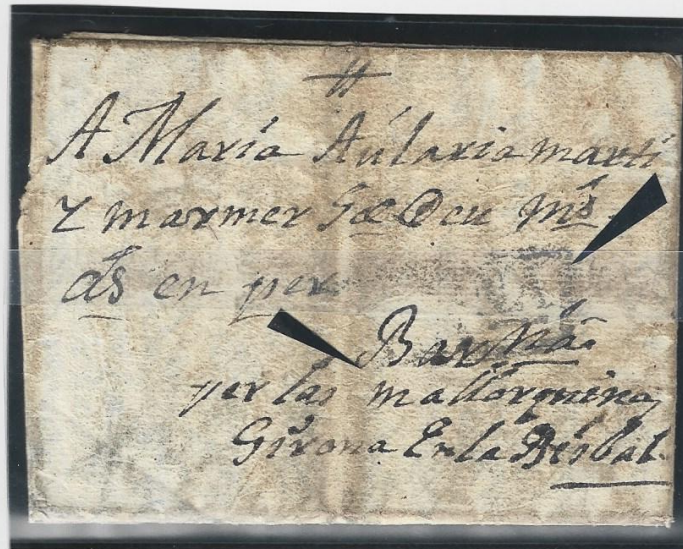 A Maria Aúlaria martí
y marmer G̃e Deu m̃s
d̃s en per
Barña
per las mallorquinas
Girona En la Bisbal